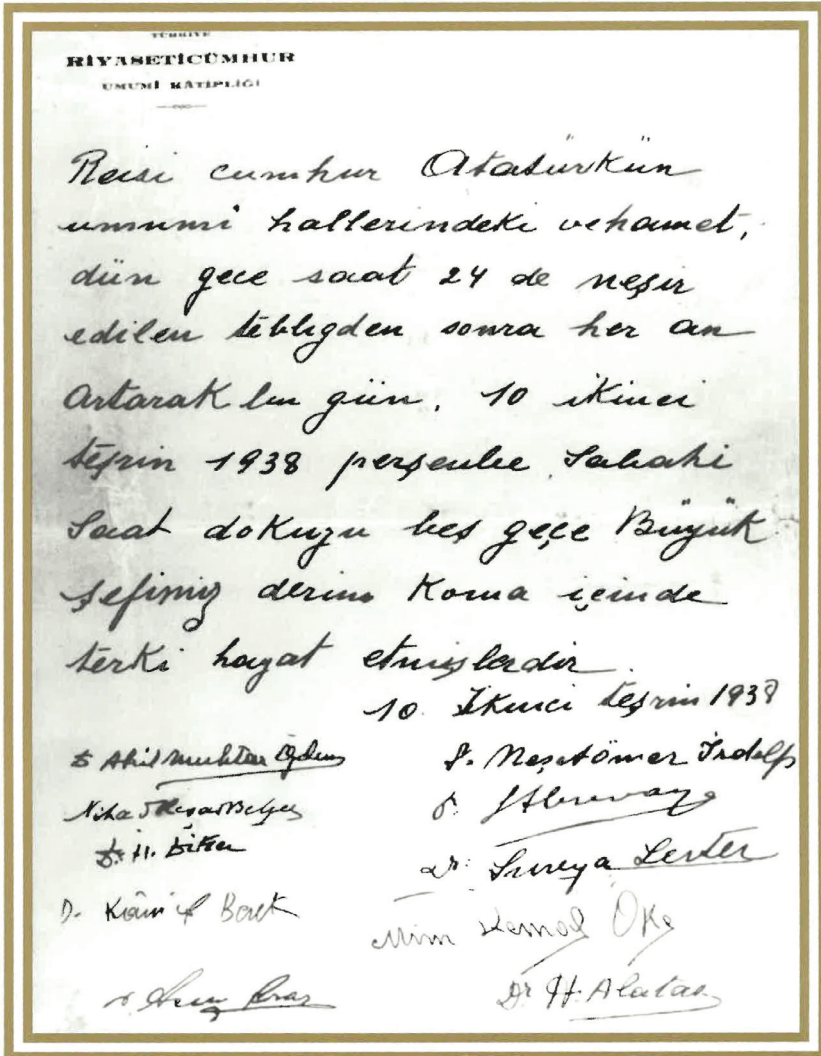 TÜRKİYE
RİYASETİCÜMHUR
UMUMİ KÂTİPLİĞİ
Reisi cumhur Atatürkün
umumi hallerindeki vehamet,
dün gece saat 24 de neşir
edilen tebligden sonra her an
artarak bu gün, 10 ikinci
teşrin 1938 perşenbe sabahi
saat dokuzu beş geçe Büyük
şefimiz derin koma içinde
terki hayat etmişlerdir.
10 İkinci teşrin 1938
Dr Akil Muhtar Özden
Dr. Neşetömer İrdelp
Nihad Reşad Belger
Dr.
Dr. H. Diker
Dr. Sureya Serter
Dr. Kâmil Berk
Mim Kemal Öke
Dr
Dr H. Alatas